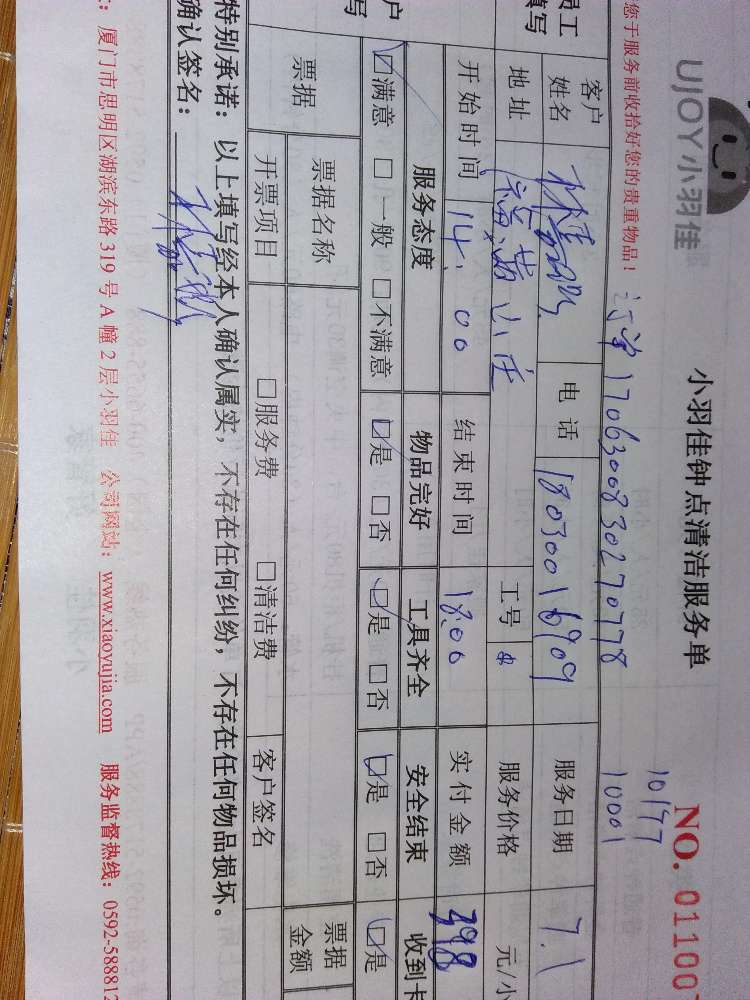 UJOY小羽佳
小羽佳钟点清洁服务单
NO.01100
您于服务前收拾好您的贵重物品！
1706300830270778
10177
10001
员工
填写
客户
姓名
电话
18030016909
服务日期
7.1
地址
工号
服务价格
元/小
开始时间
14:00
结束时间
18:00
实付金额
398
户
写
服务态度
物品完好
工具齐全
安全结束
收到卡
☑满意 □一般 □不满意
☑是 □否
☑是 □否
☑是 □否
☑是
票据
票据名称
票据
金额
开票项目
□服务费
□清洁费
客户签名
特别承诺：以上填写经本人确认属实，不存在任何纠纷，不存在任何物品损坏。
确认签名：
厦门市思明区湖滨东路319号A幢2层小羽佳 公司网站：www.xiaoyujia.com 服务监督热线：0592-588812